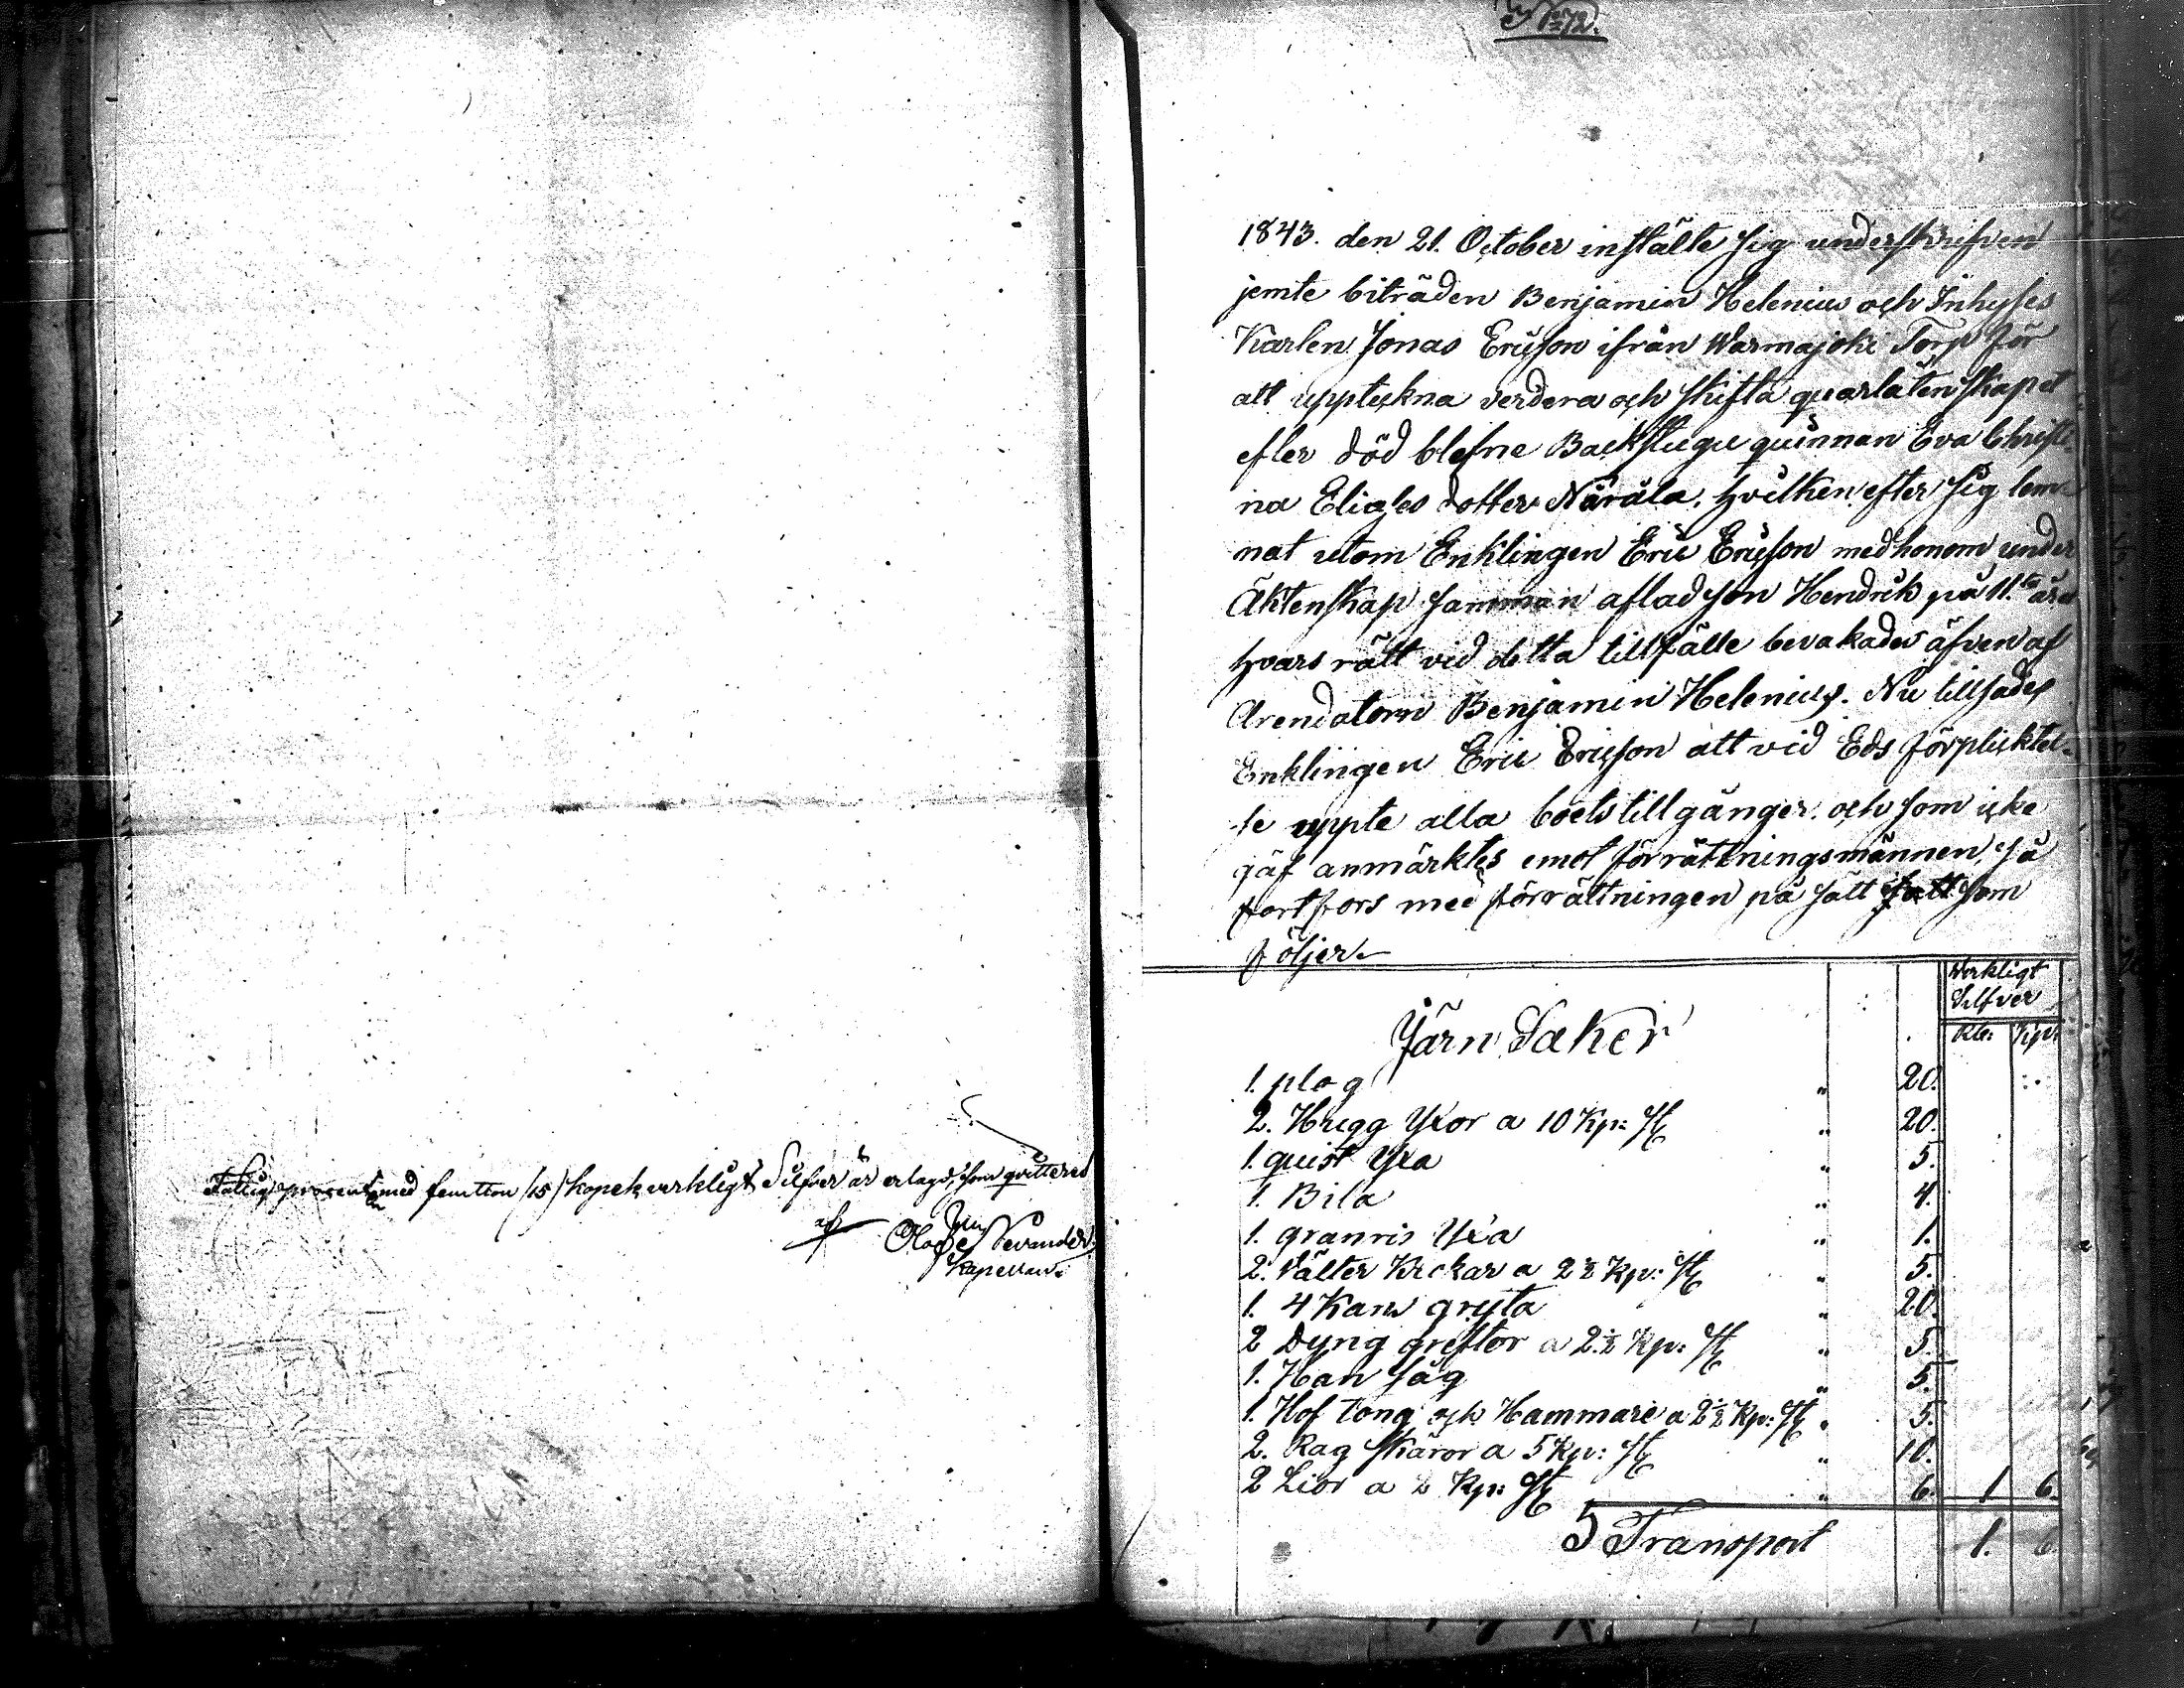 Fattig procenten med femtton /15/ kopek verkligt Silfver är erlagd, som qvitteras
af Olof Nevander.
Kapellan.
1843. den 21. October instälte sig underskrifven
jemte biträden Benjamin Helenius och Inhyses
Karlen Jonas Ericson ifrån Warmajoki Torp för
att upptekna verdera och skifta quarlåtenskapet
efter död blefne Backstugu quinnan Eva Christi-
na Eliæs dotter Närälä. hvilken efter sig lem-
nat utom Enklingen Eric Ericson med honom under
Äktenskap samman aflad son Hendrik på 11.te året
hvars rätt vid detta tillfälle bevakades äfven af
Arendatorn Benjamin Helenius. Nu tillsades
Enklingen Eric Ericson att vid Eds förpliktel-
se uppte alla boets tillgånger. och som icke
gäf anmärktes emot förrättningsmännen, så
fortfors med förrättningen på sätt som
följer
Werkligt
Silfver
Rbl: Kp:
Järn Saker
1. plog " 20.
2. Hugg Yxor a 10 Kp: St " 20.
1. quist Yxa " 5.
1. Bila " 4.
1. granris Yxa " 1.
2. Välter Krokar a 2½ Kp: St " 5.
1. 4 Kans gryta " 20.
2 Dyng greftor a 2½ Kp: St " 5.
1. Han såg " 5.
1. Hof tong och Hammare a 2½ Kp: St " 5.
2. Rag skäror a 5 Kp: St " 10.
2 Lior a Kp: St " 6. 1 6.
Transport 1. 6